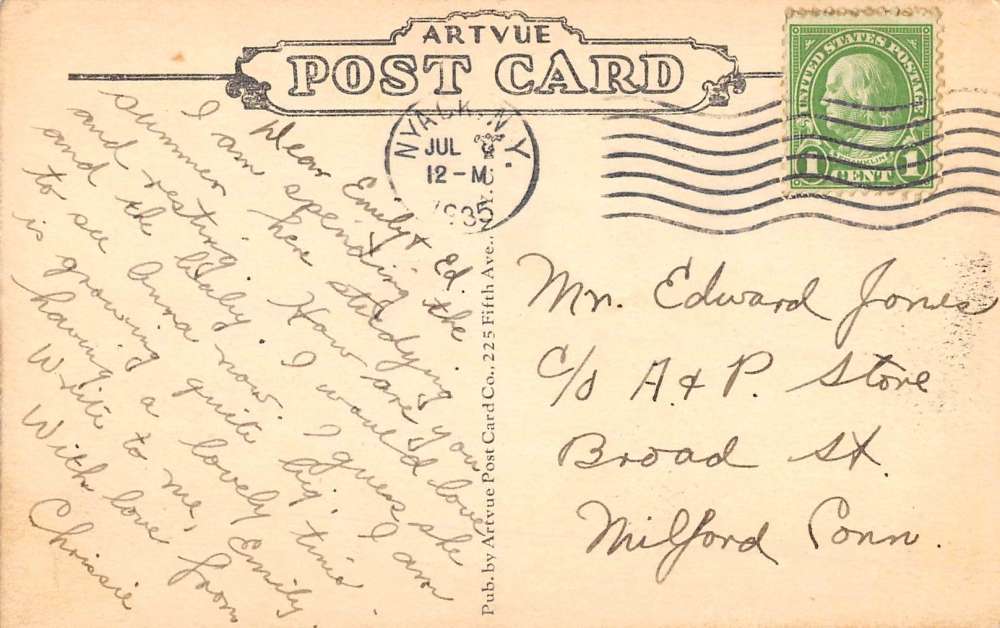 ARTVUE
POST CARD
NYACK, N.Y.
JUL 9
12-M
1935
UNITED STATES POSTAGE
FRANKLIN
1 CENT 1
Dear Emily & Ed.
I am spending the
summer here studying
and resting. How are you
and the baby. I would love
to see Anna now. I guess she
is growing quite big. I am
having a lovely time.
Write to me, Emily.
With love from
Chrissie
Pub. by Artvue Post Card Co., 225 Fifth Ave., N.Y.C.
Mr. Edward Jones
c/o A. & P. Store
Broad St.
Milford Conn.